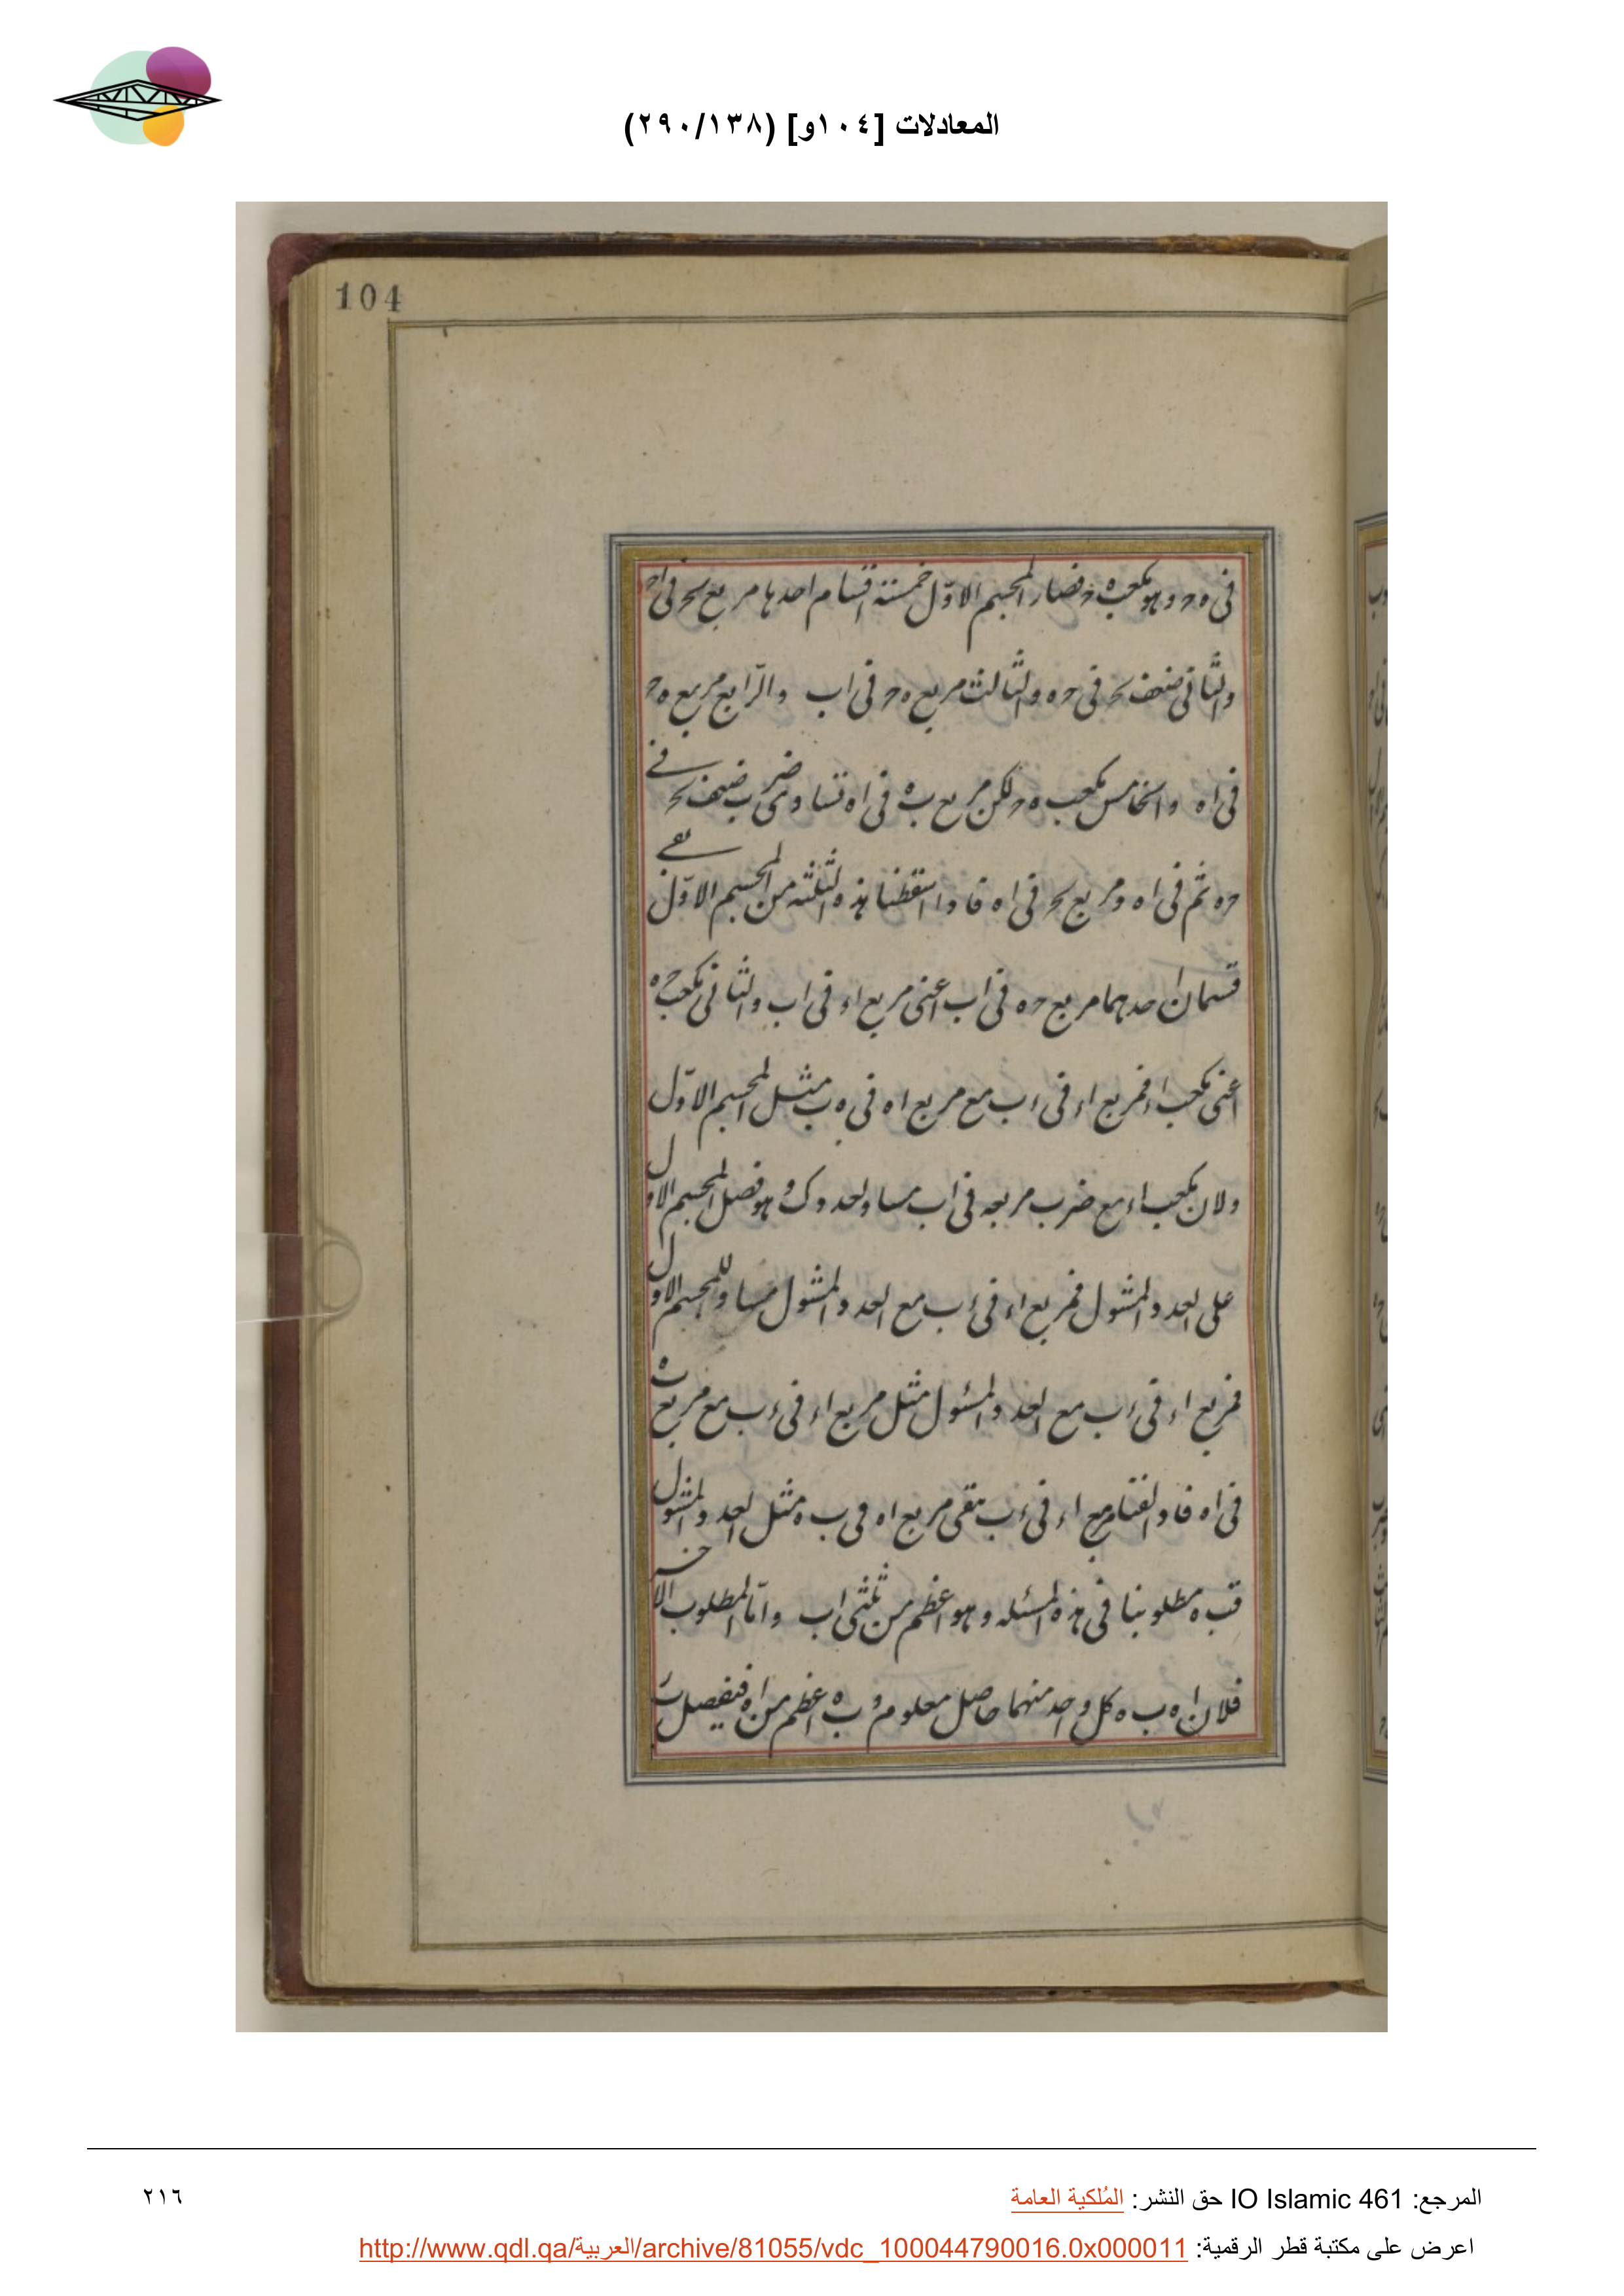 المعادلات [١٠٤و] (٢٩٠/١٣٨)
104
في ه ح وهو مكعب ه ح فصار المجسم الاوّل خمسة اقسام احدها مربع ىح في اح
والثاني ضعف ىح في ح ه والثالث مربع ه ح في اب والرّابع مربع ه ح
في اه والخامس مكعب ه ح لكن مربع ب ه في اه تساوى ضرب ضعف ىح في
ح ه ثم في اه ومربع ىح في اه فاذا اسقطنا هذه الثلثه من المجسم الاوّل يبقى
قسمان احدهما مربع ح ه في اب اعنى مربع اء في اب والثاني مكعب ح ه
اعنى مكعب اء فمربع اء في ء ب مع مربع اه في ه ب مثل المجسم الاوّل
ولان مكعب اء مع ضرب مربعه في اب مساو لعدد ك و هو فضل المجسم الاول
على العدد المسٔول فمربع اء في ء ب مع العدد المسٔول مساو للمجسم الاول
فمربع اء في ء ب مع العدد المسٔول مثل مربع اء في ء ب مع مربع ب ه
في اه فاذا القينا مربع اء في ء ب بقى مربع اه في ب ه مثل العدد المسٔول
فب ه مطلوبنا في هذه المسٔله وهو اعظم من ثلثى اب وامّا المطلوب الاخر
فلان اه ب ه كل واحد منهما حاصل معلوم و ب ه اعظم من اه فنفصل
المرجع: IO Islamic 461 حق النشر: المُلكية العامة
٢١٦
اعرض على مكتبة قطر الرقمية: http://www.qdl.qa/العربية/archive/81055/vdc_100044790016.0x000011